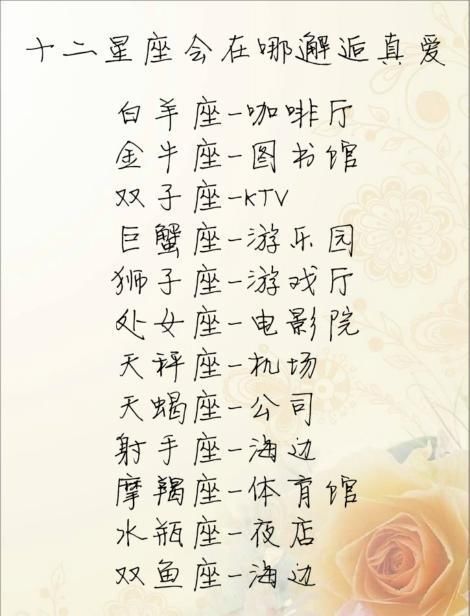 十二星座会在哪邂逅真爱
白羊座-咖啡厅
金牛座-图书馆
双子座-KTV
巨蟹座-游乐园
狮子座-游戏厅
处女座-电影院
天秤座-机场
天蝎座-公司
射手座-海边
摩羯座-体育馆
水瓶座-夜店
双鱼座-海边